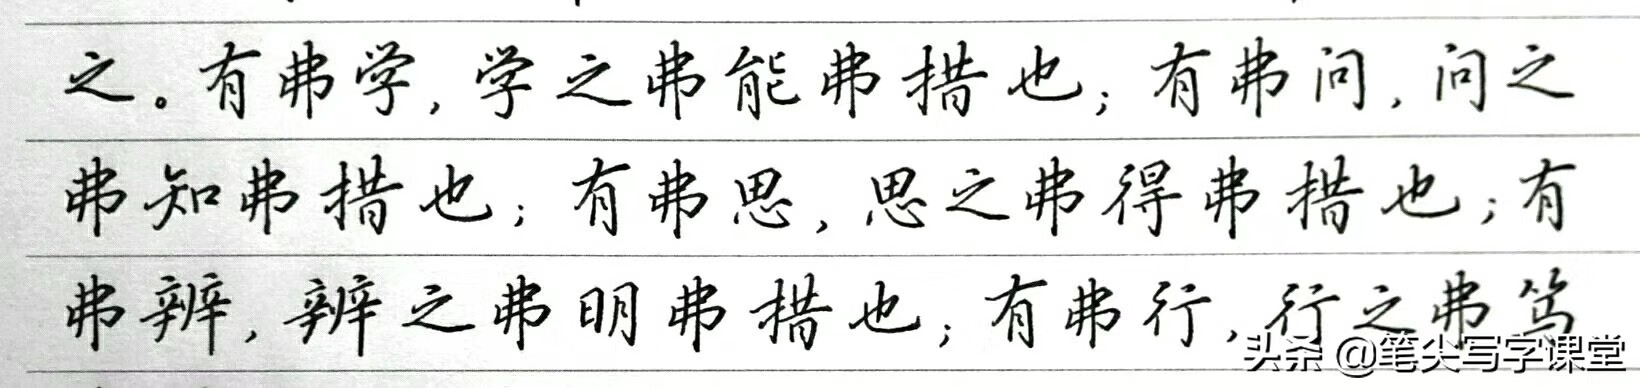 之。有弗学,学之弗能弗措也;有弗问,问之
弗知弗措也;有弗思,思之弗得弗措也;有
弗辨,辨之弗明弗措也;有弗行,行之弗笃
头条 @笔尖写字课堂